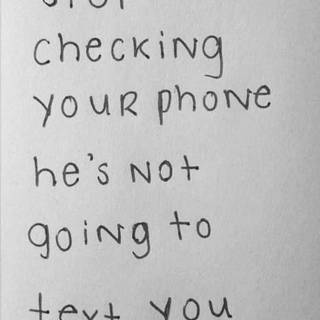 checkiNg
YOUR phoNe
he's Not
goiNg to
text YOU